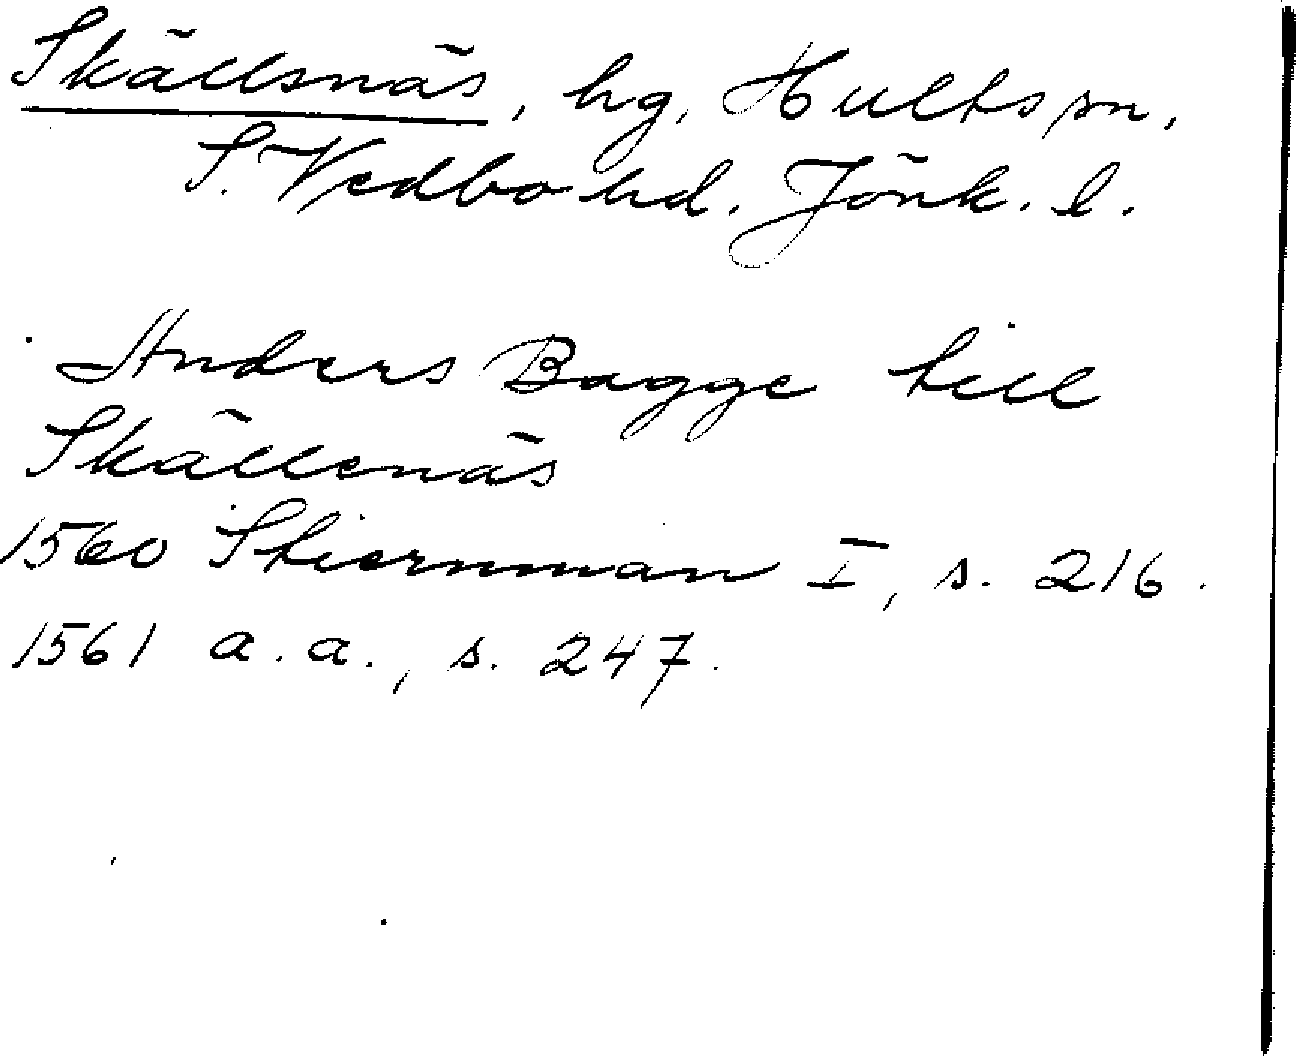 Skällsnäs, hg, Hults sn,
S. Vedbo hd. Jönk. l.
Anders Bagge till
Skällenäs
1560 Stiernman I, s. 216.
1561 a.a., s. 247.